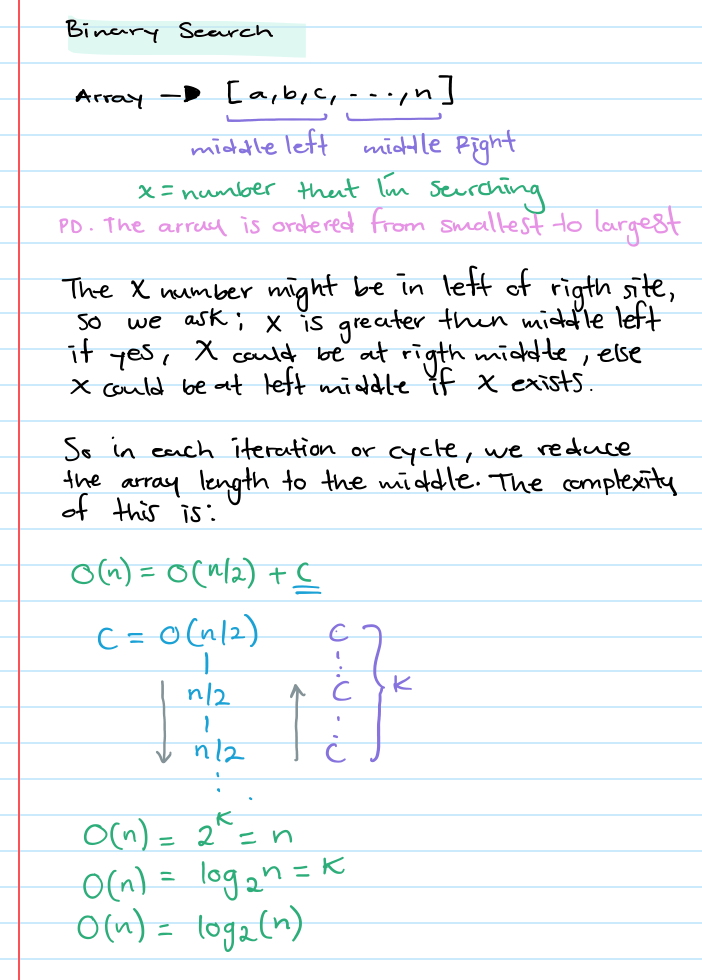 Binary Search
Array → [a,b,c, ---,n]
middle left middle Right
x = number that I'm searching
PD. The array is ordered from smallest to largest
The X number might be in left of rigth site,
so we ask; x is greater then middle left
if yes, X could be at rigth middle, else
x could be at left middle if x exists.
So in each iteration or cycle, we reduce
the array length to the middle. The complexity
of this is:
O(n) = O(n/2) + C
C = O(n/2) C
n/2 C K
n/2 C
O(n) = 2^K = n
O(n) = log₂n = K
O(n) = log₂(n)